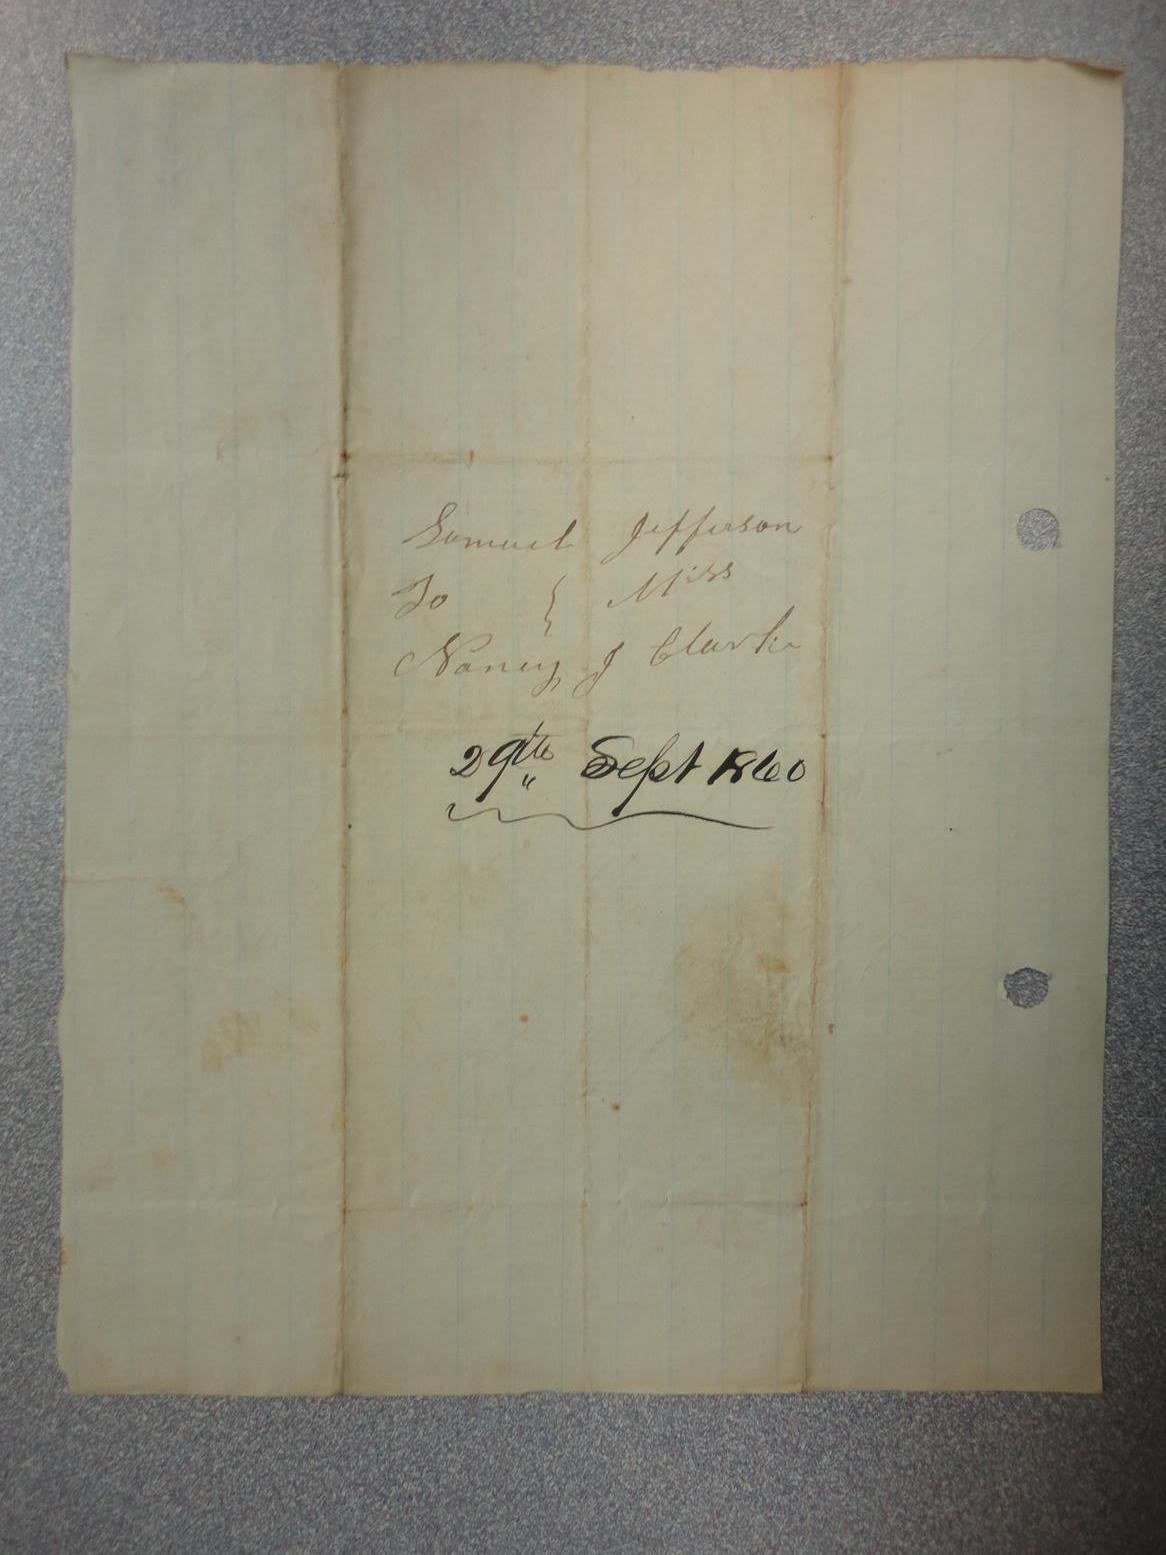 Samuel Jefferson
To } Miss
Nancy J Clarke
29th Sept 1860